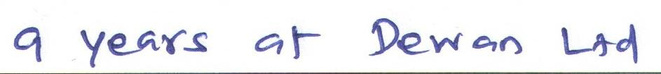 9 years at Dewan Ltd